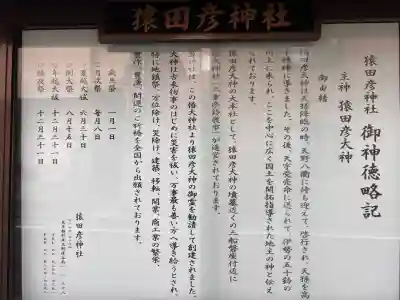 猿田彦神社
猿田彦神社 御神徳略記
主神 猿田彦大神
御由緒
猿田彦大神は天孫降臨の時、天の八衢に待ち迎えて、啓行され、天孫を高
千穂峰に導きました。その後、天宇受売命に送られて、伊勢の五十鈴の
川上に来られ、ここを中心に広く国土を開拓指導された地主の神と伝え
られております。
猿田彦大神の大本社として、猿田彦大神の墳墓近くの三船磐座付近に
大神社が
当社は、この椿大神社より猿田彦大神の御霊を勧請して創建されました。
大神は古来物事のはじめに災害を祓い、万事最も善い方へ導き給うとされ、
特に地鎮祭、方位除け、災除け、建築、移転、開業、商工業の繁栄、
開運のご祈祷を全国から出願されております。
歳旦祭 一月一日
月次祭 毎月八日
夏越大祓 六月三十日
例大祭 八月十五日
年越大祓 十二月三十一日
除夜祭 十二月三十一日
猿田彦神社